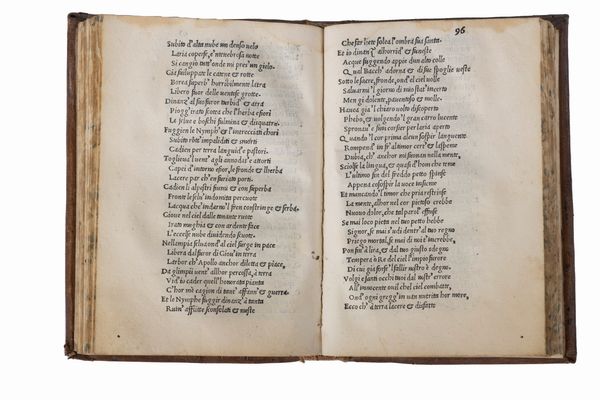 Subito d'alta nube un denso velo
L'aria coperse, e'ntenebrosa notte
Si cangiò tutt'onde mi pres'un gielo.
Già sviluppat' le catene & rotte
Borea superb' horribilmente latra
Libero fuor delle ventose grotte.
Dinanz' al suo furor turbid' & atra
Piogg' irato scotea che l'herba e fiori
Le selve e boschi fulmina & disquatra.
Fuggien le Nymph' & l'intrecciati chori
Subito rott' impalidit' & smorti
Cadien per terra languid' e pastori.
Toglieva l'uent' agli annodat' e attorti
Capei d'intorno e fior, le fronde & lherba
Lacere par ch'en furiato porti.
Cadien li alpestri fiumi & con superba
Fronte le selv' indomita percuote
L'acqua che'indarno'l fren constringe & serba.
Giove nel ciel dalle tonante ruote
Irato mughia & con ardente face
L'eccelse nube dividendo scuote.
Nell'ampia selva ond' al ciel surge in pace
Libera dal furor di Giov' in terra
L'arbor ch'Apollo anchor diletta & piace,
Da g'impii vent' allhor percossa, à terra
Vid' io cader quell'honorata pianta
C'hor mè cagion di tant' affann' & guerra.
Et le Nymphe fuggir dinanz' à tanta
Ruin' afflitte sconsolate & meste
96
Che ser liete solea l'ombra sua santa.
Et io dinanz' all'horrid' & funeste
Acque fuggendo appie d'un alto colle
Qual Bacch' adorna & di sue spoglie veste
Sotto le sacre, fronde, ond' el ciel volle
Salvarmi'l giorno di mia stat' incerto
Men gi dolente, paventoso & molle.
Havea già'l chiaro volto discoperto
Phebo, & volgendo'l gran carro lucente
Spronava e suoi corsier per l'aria aperto
Quando'l cor prima alcun sospir languente
Rompend' in fr'al timor cert' & la speme
Dubia, ch'anchor mi suona nella mente,
Sciolse la lingua, & quasi d'hom che teme
L'ultimo fin del freddo petto spinse
Appena co sospir la voce insieme
Et mancando'l timor che pria restrinse
La mente, allhor nel cor pietoso crebbe
Nuovo dolor, che tal parol' espinse
Se mai loco pieta nel tuo petto hebbe
Signor, se mai s'udi dentr' al tuo regno
Priego mortal, se mai di noi t'increbbe,
Pon fin' à lira, & dal tuo giusto sdegno
Tempera ò Re del ciel l'impio furore
Di cui già forse'l fallir nostro è degno.
Volgi e santi occhi tuoi dal nostr' errore
All'innocente ovil che'l ciel combatte,
Ond' ogni gregg' in van nutrita hor more,
Ecco ch' à terra lacere & disfatte